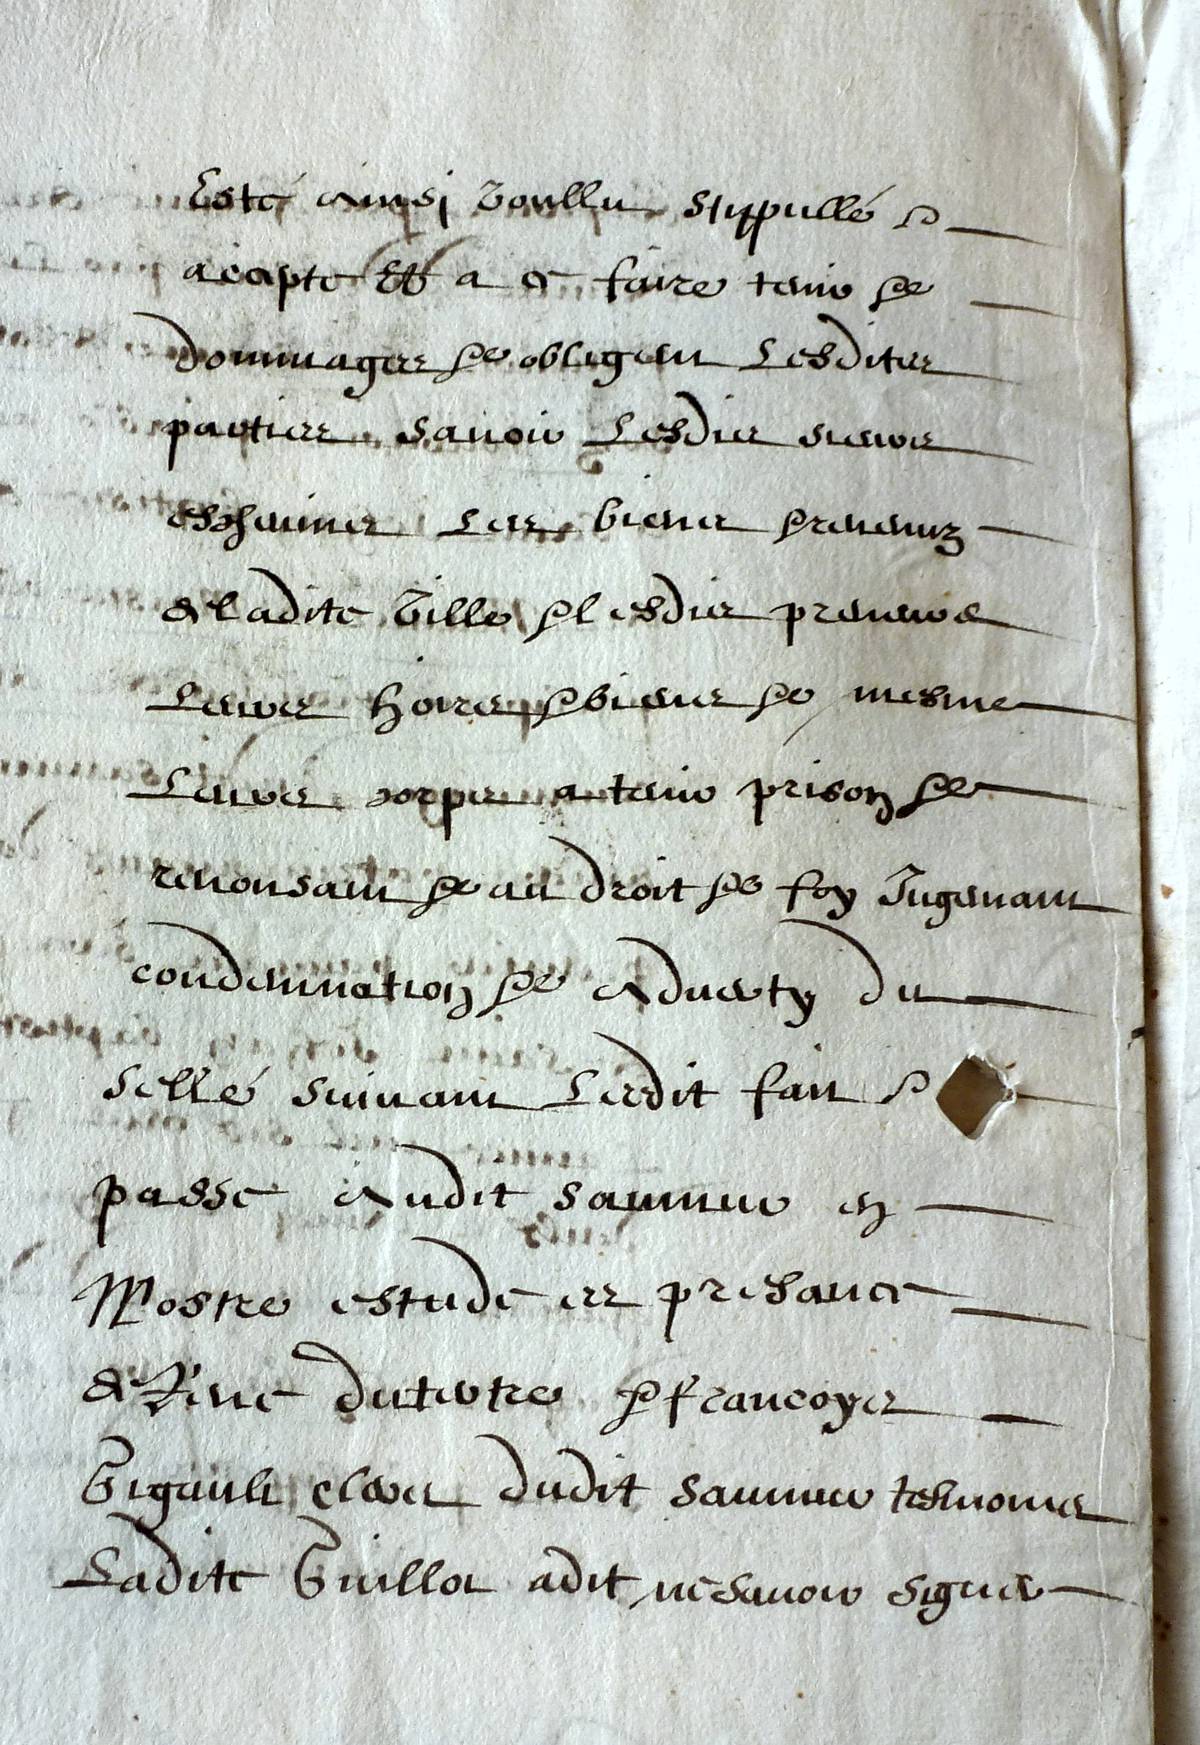 Esté ainsi voullu stippullé &
acepté et a ce faire tenir &c
dommages &c obligeant lesdites
parties savoir lesdies sieurs
eschevins les biens & revenuz
de ladite ville & lesdies preneurs
leurs hoirs & biens &c mesme
leurs corps a tenir prison &c
renonsant &c au droit &c foy Jugement
condemnation &c adverty du
sellé suivant lerdit fait &
passé audit saumur en
Nostre estude es presance
de René dutertre & francoys
Gigault clers dudit saumur tesmoins
Ladite Guillot a dit ne savoir signer